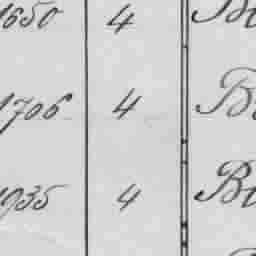 1650 4
1706 4
1935 4